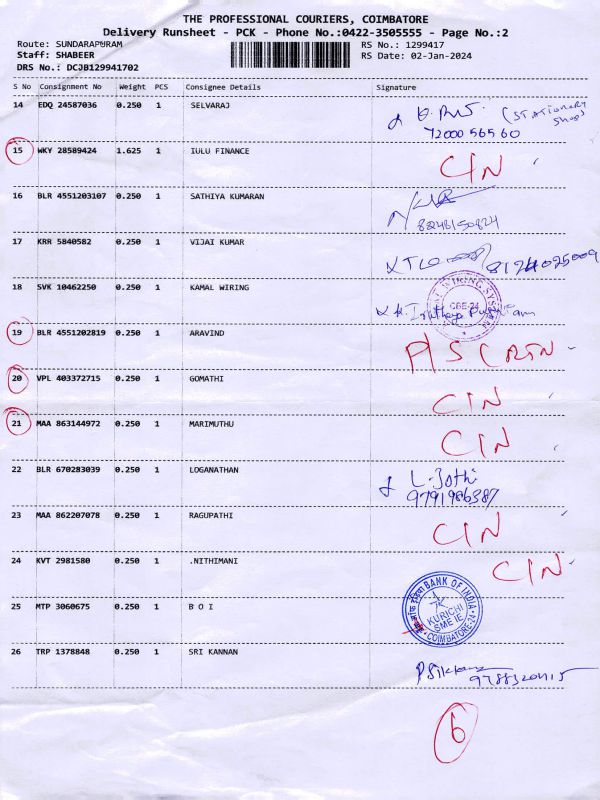 THE PROFESSIONAL COURIERS, COIMBATORE
Delivery Runsheet - PCK - Phone No.:0422-3505555 - Page No.:2
Route: SUNDARAPURAM RS No.: 1299417
Staff: SHABEER RS Date: 02-Jan-2024
DRS No.: DCJB129941702
S No Consignment No Weight PCS Consignee Details Signature
14 EDQ 24587036 0.250 1 SELVARAJ (STATIONERY SHOP)
72000 565 60
15 WKY 28589424 1.625 1 IULU FINANCE C/N
16 BLR 4551203107 0.250 1 SATHIYA KUMARAN
8248150824
17 KRR 5840582 0.250 1 VIJAI KUMAR 8124025009
18 SVK 10462250 0.250 1 KAMAL WIRING
WIRING SYSTEM CBE-24
19 BLR 4551202819 0.250 1 ARAVIND P/S C RTN
20 VPL 403372715 0.250 1 GOMATHI C/N
21 MAA 863144972 0.250 1 MARIMUTHU C/N
22 BLR 670283039 0.250 1 LOGANATHAN L. Jothi
9791986387
23 MAA 862207078 0.250 1 RAGUPATHI C/N
24 KVT 2981580 0.250 1 .NITHIMANI C/N
25 MTP 3060675 0.250 1 B O I
BANK OF INDIA
KURICHI
SME IE
COIMBATORE-24
26 TRP 1378848 0.250 1 SRI KANNAN
6